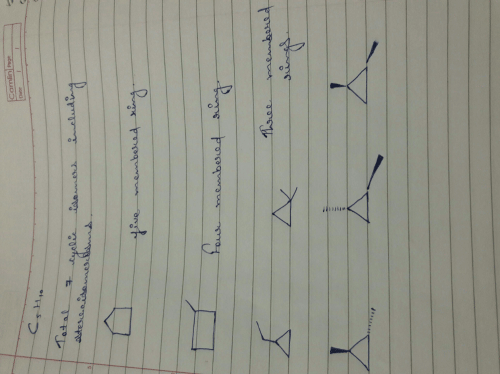 Camlin Page
Date / /
C5H10
Total 7 cyclic isomers including
stereoisomerisms.
five membered ring.
Four membered ring.
Three membered
rings.